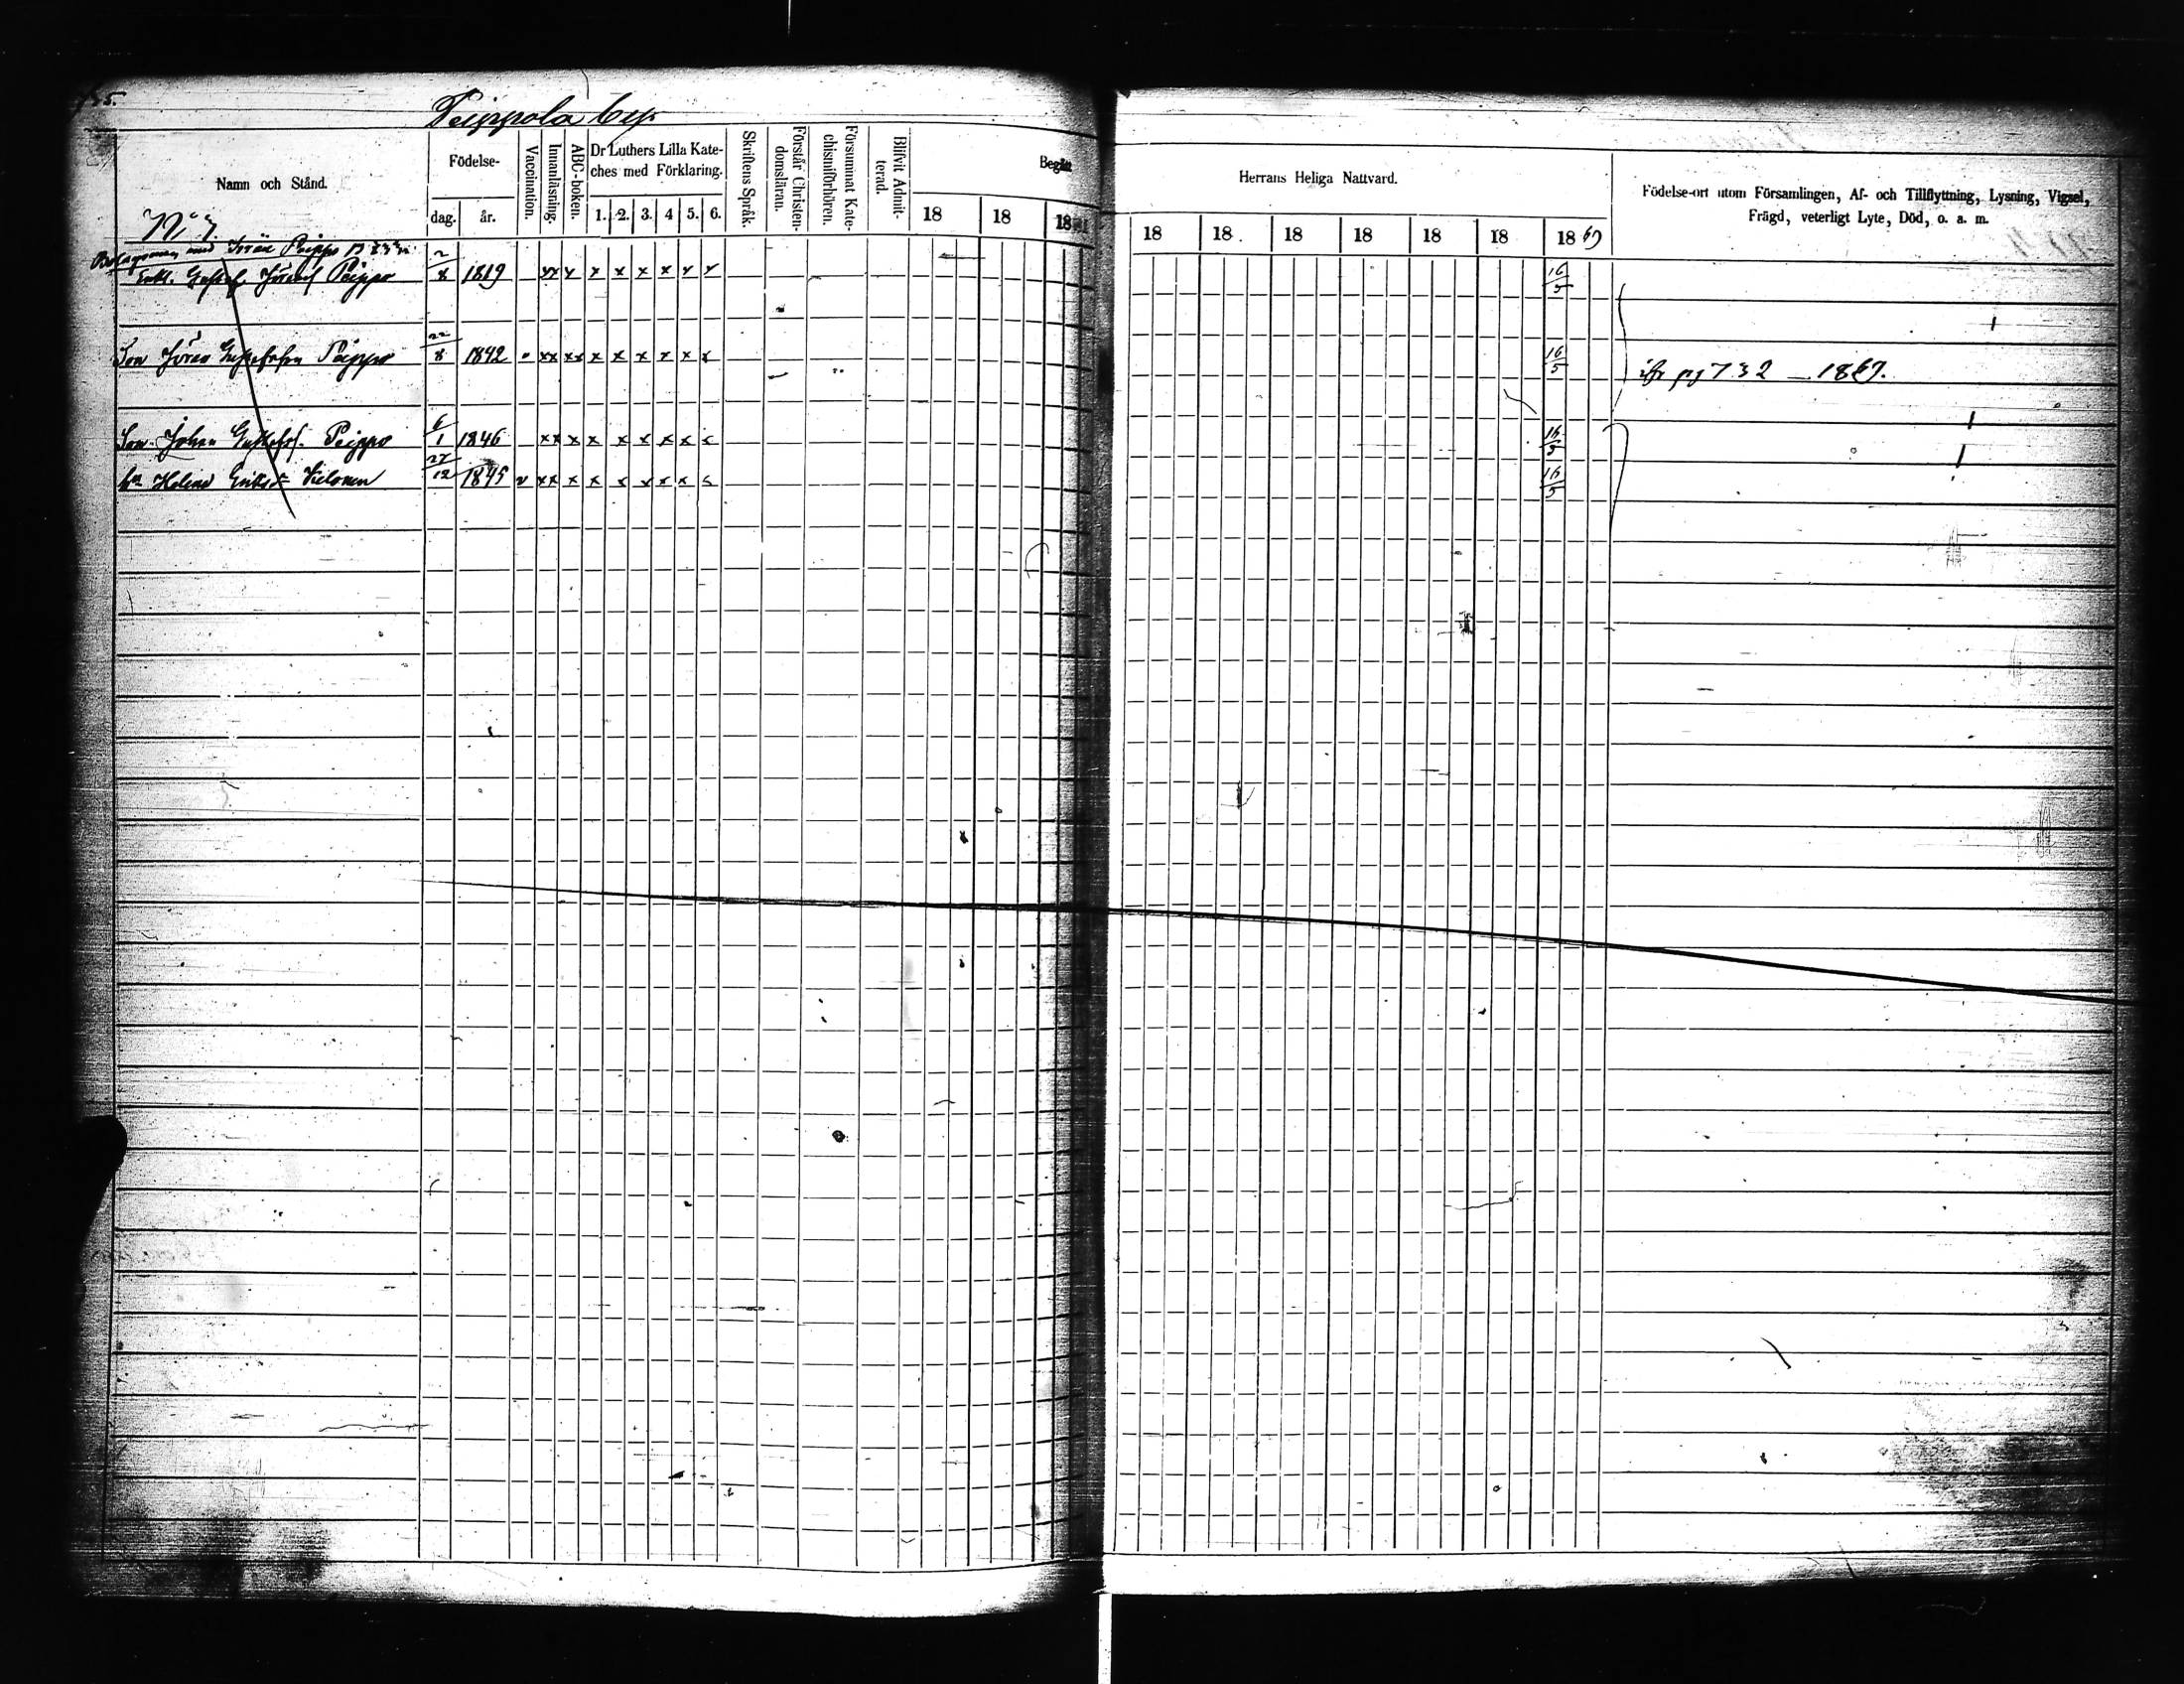 Peippola by.
Namn och Stånd.
Födelse-
dag. år.
Vaccination.
Innanläsning.
ABC-boken.
Dr Luthers Lilla Kate-
ches med Förklaring.
1. 2. 3. 4 5. 6.
Skriftens Språk.
Förstår Christen-
domsläran.
Försummat Kate-
chismiförhören.
Blifvit Admit-
terad.
Begått
18 18 18
Herrans Heliga Nattvard.
18 18. 18 18 18 18 18 69
Födelse-ort utom Församlingen, Af- och Tillflyttning, Lysning, Vigsel,
Frägd, veterligt Lyte, Död, o. a. m.
N:o 7.
Bolagsman med Jöran Peippo
Enkl. Gustaf Jöransf Peippo 2/8 1819 xx x x x x x x x 16/5
Son Jöran Gustafsson Peippo 22/8 1842 xx xx x x x x x x 16/5 732 1869.
Son Johan Gustafss. Peippo 6/1 1846 xx x x x x x x x 16/5
Helena Eriksd:r 27/12 1845 v xx x x x x x x x 16/5